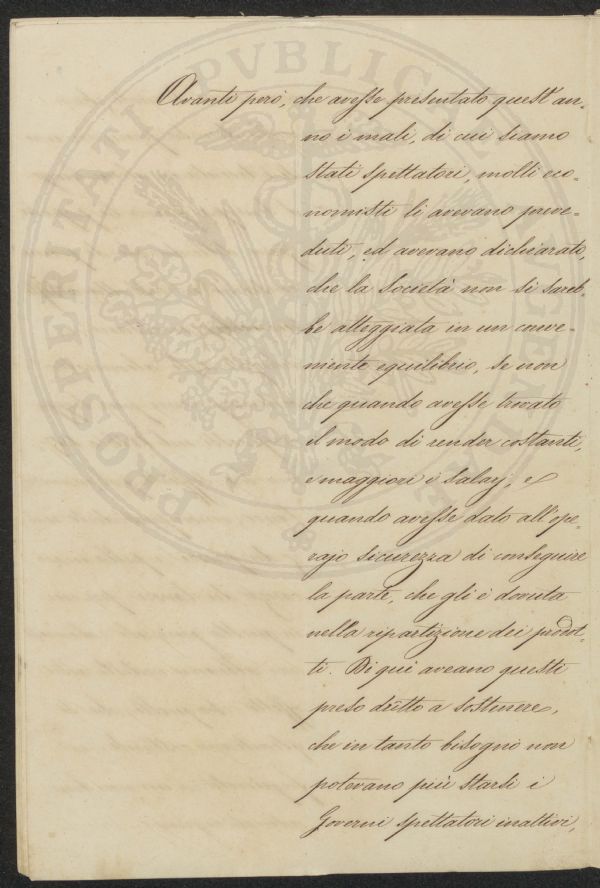 Avanti però, che avesse presentato quest'an-
no i mali, di cui siamo
stati spettatori, molti eco-
nomisti li avevano preve-
duti, ed avevano dichiarato,
che la Società non si sareb-
be atteggiata in un conve-
niente equilibrio, se non
che quando avesse trovato
il modo di render costanti,
e maggiori i salarj, e
quando avesse dato all'ope-
rajo sicurezza di conseguire
la parte, che gli è dovuta
nella ripartizione dei prodot-
ti. Di qui aveano questi
preso dritto a sostenere,
che in tanto bisogno non
potevano più starsi i
Governi spettatori inattivi,
PROSPERITATI PVBLICAE